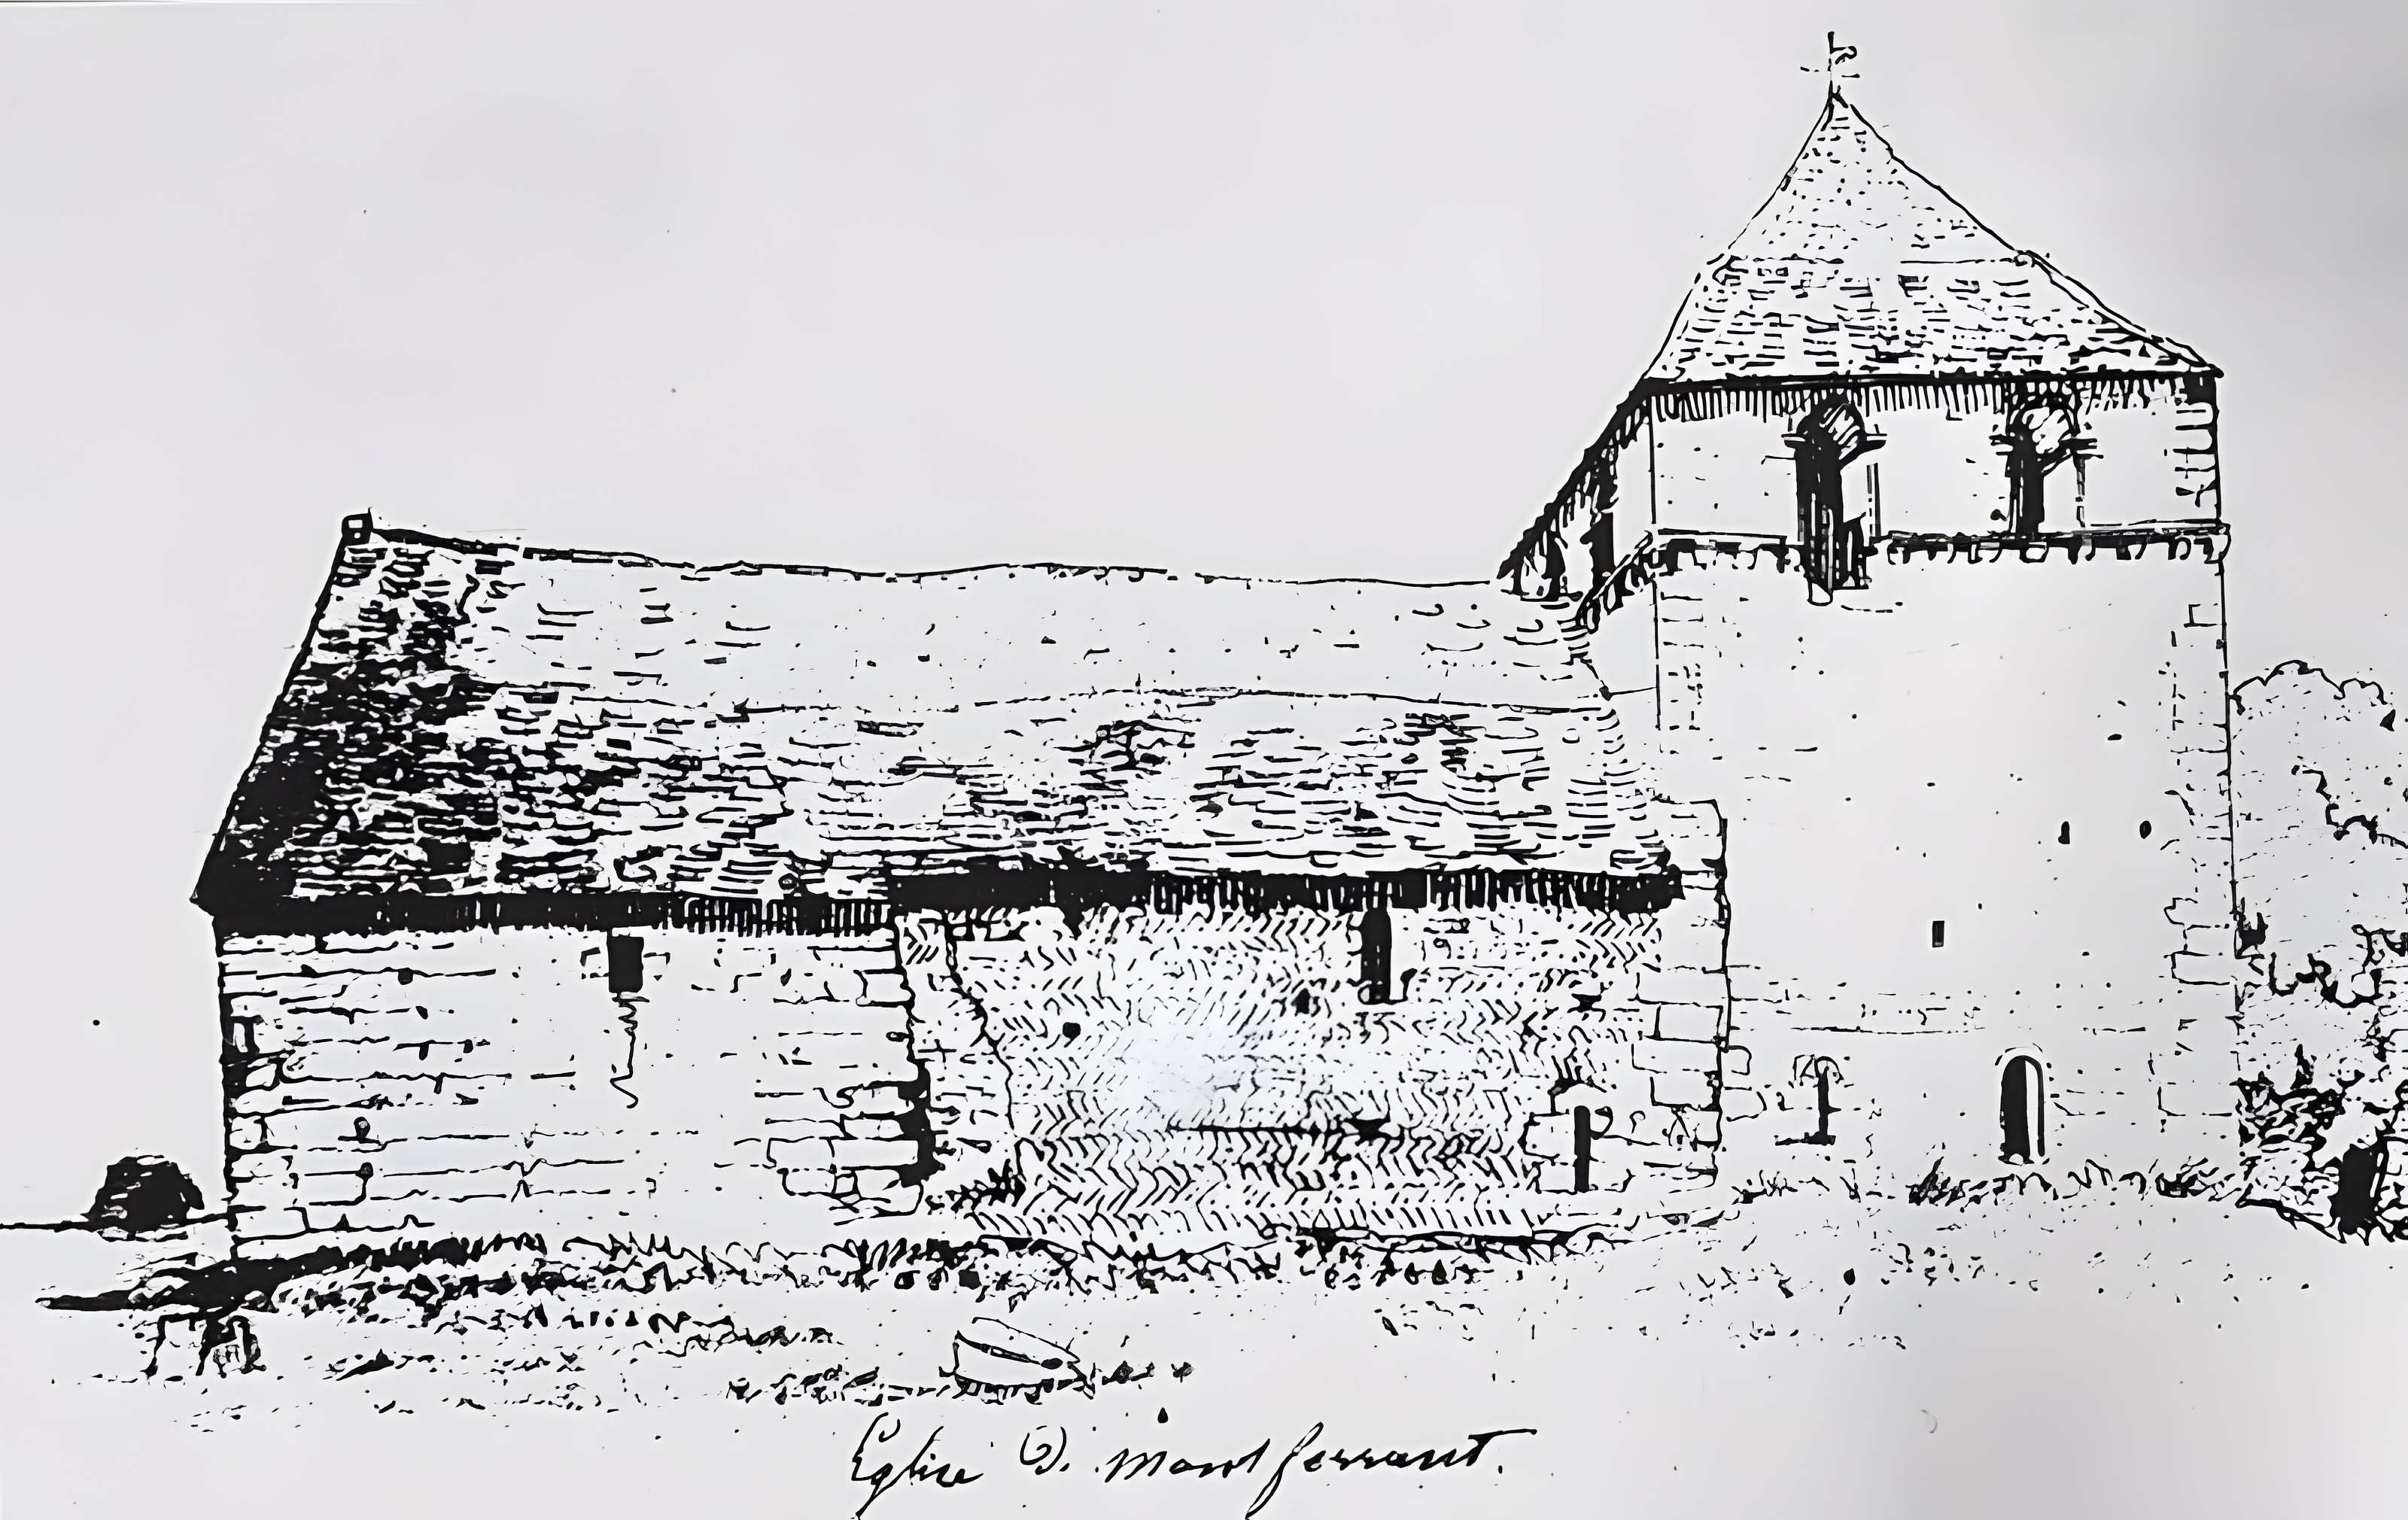 Eglise D. Mont ferrant.